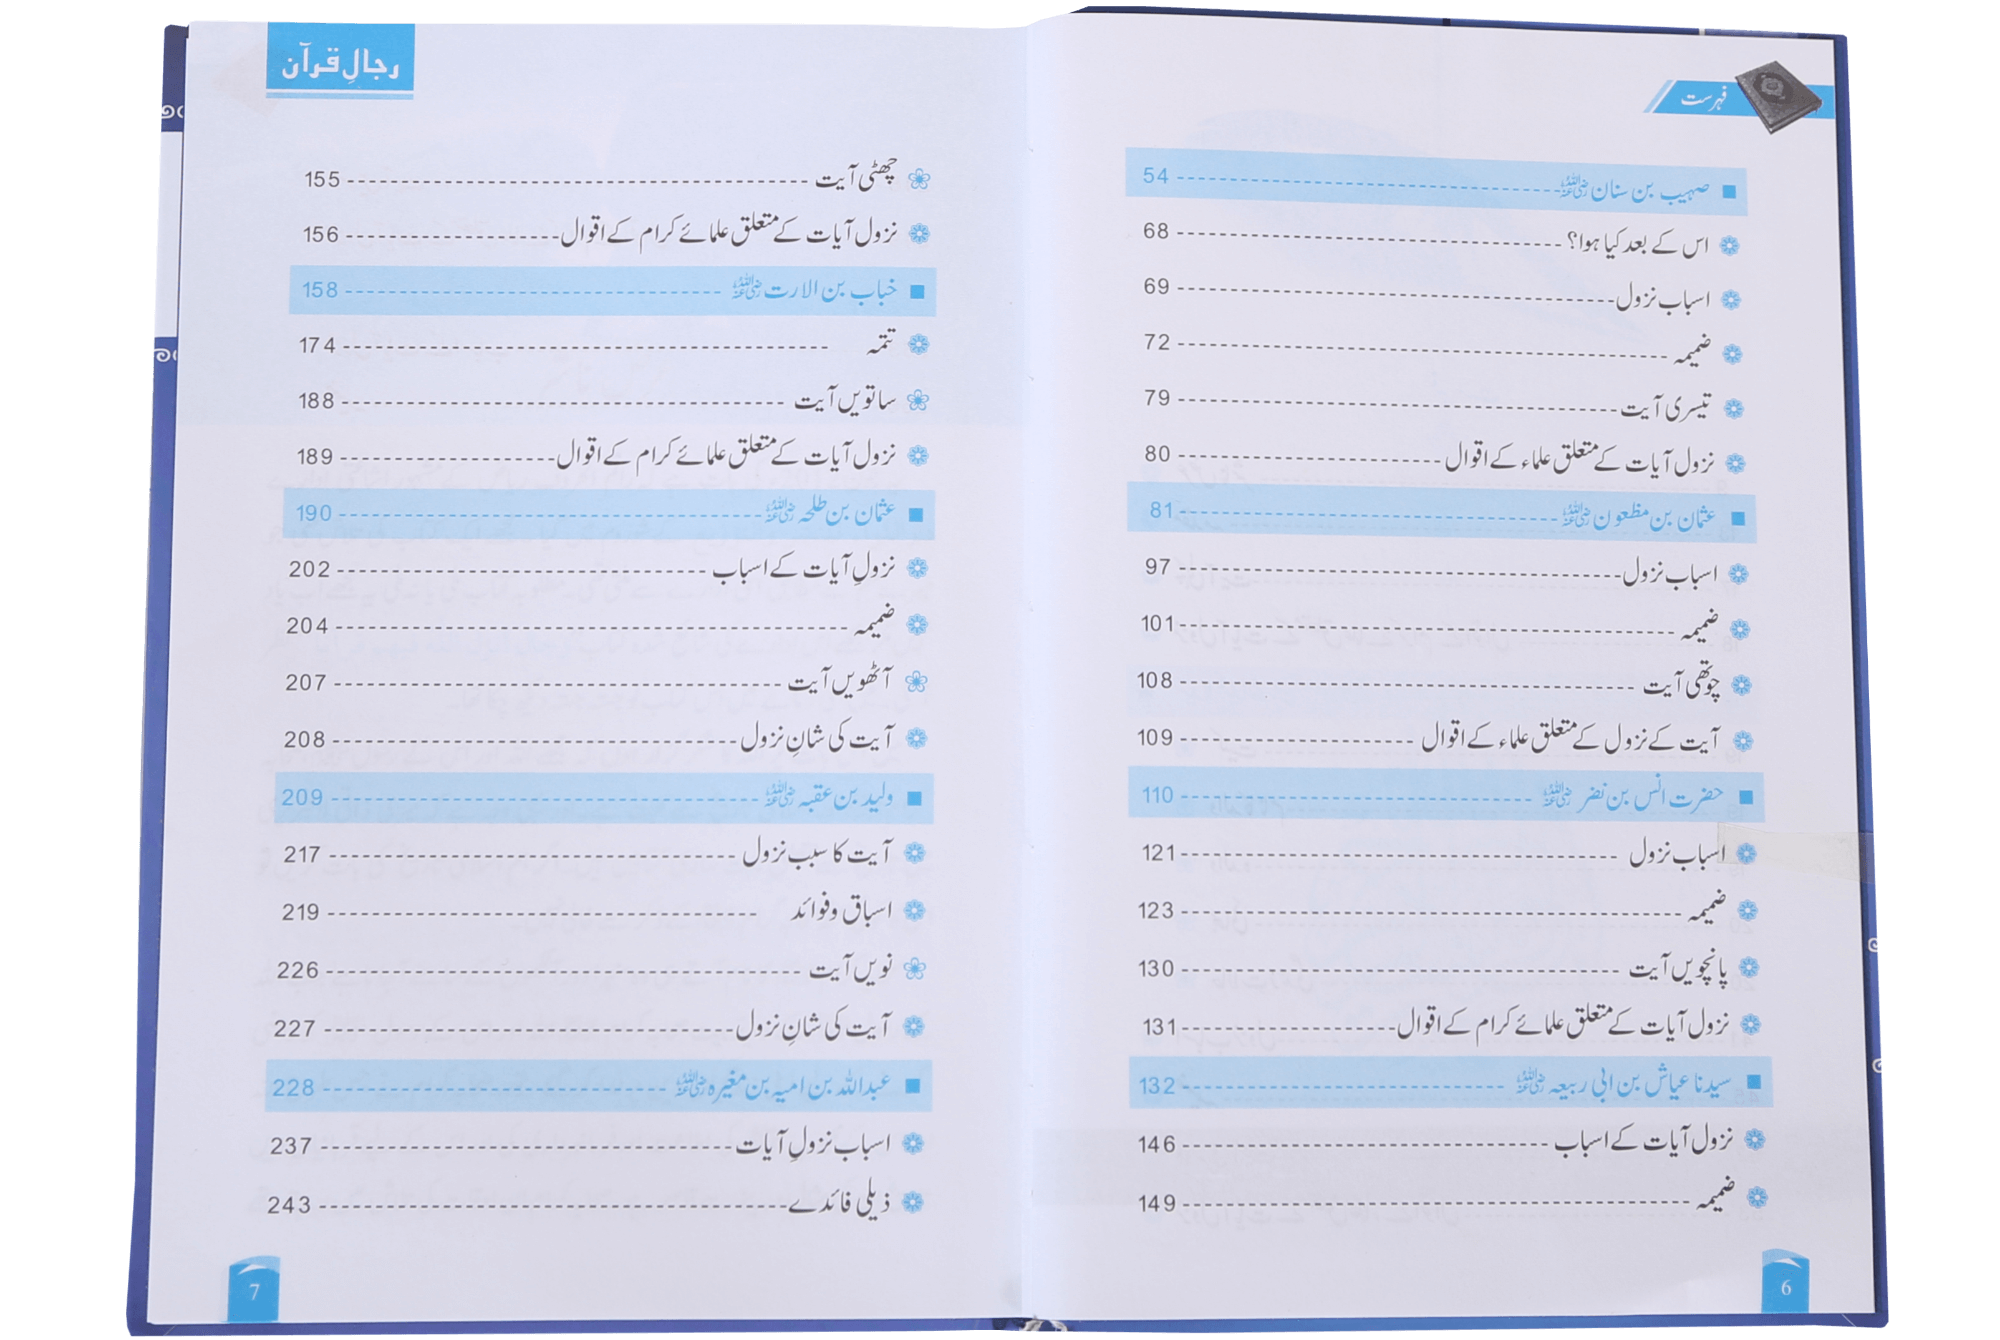 فہرست
صہیب بن سنان رضی اللہ عنہ 54
اس کے بعد کیا ہوا؟ 68
اسباب نزول 69
ضمیمہ 72
تیسری آیت 79
نزول آیات کے متعلق علماء کے اقوال 80
عثمان بن مظعون رضی اللہ عنہ 81
اسباب نزول 97
ضمیمہ 101
چوتھی آیت 108
آیت کے نزول کے متعلق علماء کے اقوال 109
حضرت انس بن نضر رضی اللہ عنہ 110
اسباب نزول 121
ضمیمہ 123
پانچویں آیت 130
نزول آیات کے متعلق علمائے کرام کے اقوال 131
سیدنا عیاش بن ابی ربیعہ رضی اللہ عنہ 132
نزول آیات کے اسباب 146
ضمیمہ 149
6
رجالِ قرآن
چھٹی آیت 155
نزول آیات کے متعلق علمائے کرام کے اقوال 156
خباب بن الارت رضی اللہ عنہ 158
تتمہ 174
ساتویں آیت 188
نزول آیات کے متعلق علمائے کرام کے اقوال 189
عثمان بن طلحہ رضی اللہ عنہ 190
نزولِ آیات کے اسباب 202
ضمیمہ 204
آٹھویں آیت 207
آیت کی شانِ نزول 208
ولید بن عقبہ رضی اللہ عنہ 209
آیت کا سبب نزول 217
اسباق و فوائد 219
نویں آیت 226
آیت کی شانِ نزول 227
عبداللہ بن امیہ بن مغیرہ رضی اللہ عنہ 228
اسباب نزولِ آیات 237
ذیلی فائدے 243
7